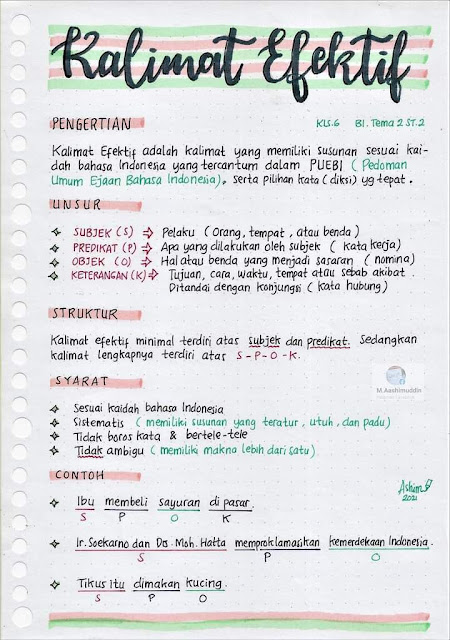 Kalimat Efektif
PENGERTIAN
KLS.6 BI. Tema 2 ST.2
Kalimat Efektif adalah kalimat yang memiliki susunan sesuai kai-
dah bahasa Indonesia yang tercantum dalam PUEBI (Pedoman
Umum Ejaan Bahasa Indonesia), serta pilihan kata (diksi) yg tepat.
UNSUR
SUBJEK (S) ⇒ Pelaku (Orang, tempat, atau benda)
PREDIKAT (P) ⇒ Apa yang dilakukan oleh subjek (kata kerja)
OBJEK (O) ⇒ Hal atau benda yang menjadi sasaran (nomina)
KETERANGAN (K) ⇒ Tujuan, cara, waktu, tempat atau sebab akibat.
Ditandai dengan konjungsi (kata hubung)
STRUKTUR
Kalimat efektif minimal terdiri atas subjek dan predikat. Sedangkan
kalimat lengkapnya terdiri atas S-P-O-K.
M.Aashimuddin
SYARAT
Sesuai kaidah bahasa Indonesia
Sistematis (memiliki susunan yang teratur, utuh, dan padu)
Tidak boros kata & bertele-tele
Tidak ambigu (memiliki makna lebih dari satu)
CONTOH
Ashim
2021
Ibu membeli sayuran di pasar.
S P O K
Ir. Soekarno dan Drs. Moh. Hatta memproklamasikan kemerdekaan Indonesia.
S P O
Tikus itu dimakan kucing.
S P O